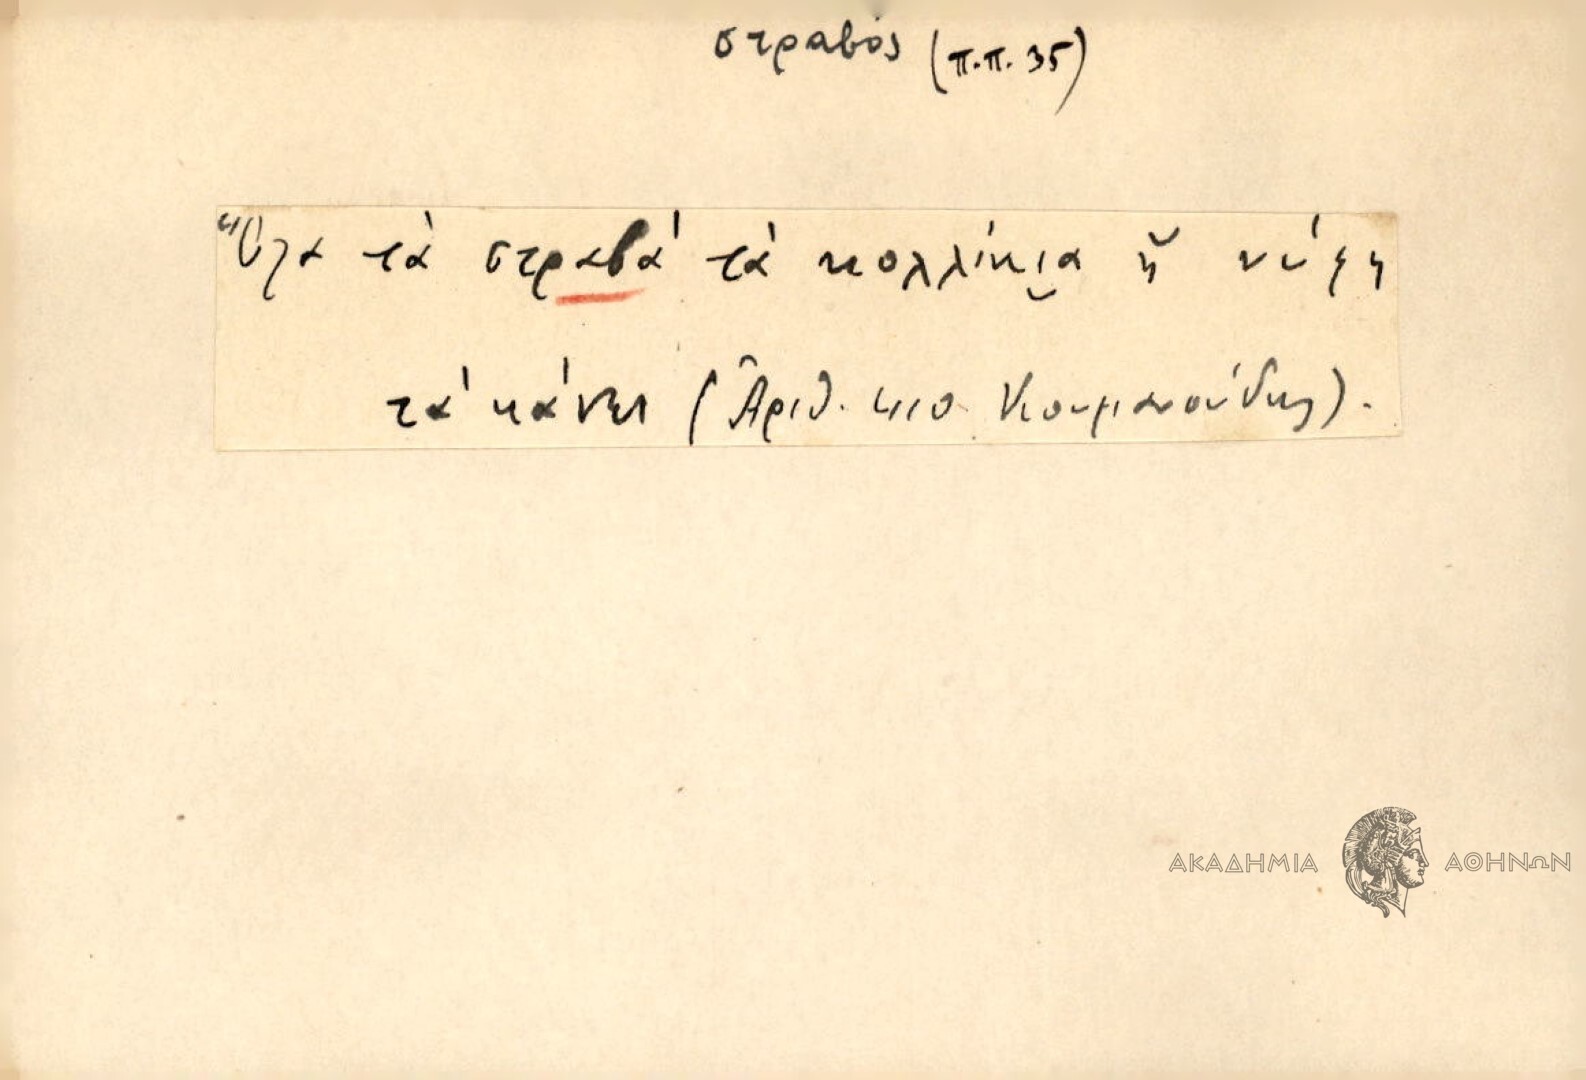 στραβός (π.π. 35)
Ὅλα τὰ στραβὰ τὰ κολλίκι̮α ἡ νύφη
τὰ κάνει (Ἀριθ. 410 Κουμανούδης).
ΑΚΑΔΗΜΙΑ ΑΘΗΝΩΝ